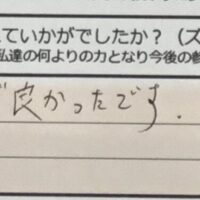 ていかがでしたか？（ズ
私達の何よりの力となり今後の参
良かったです.